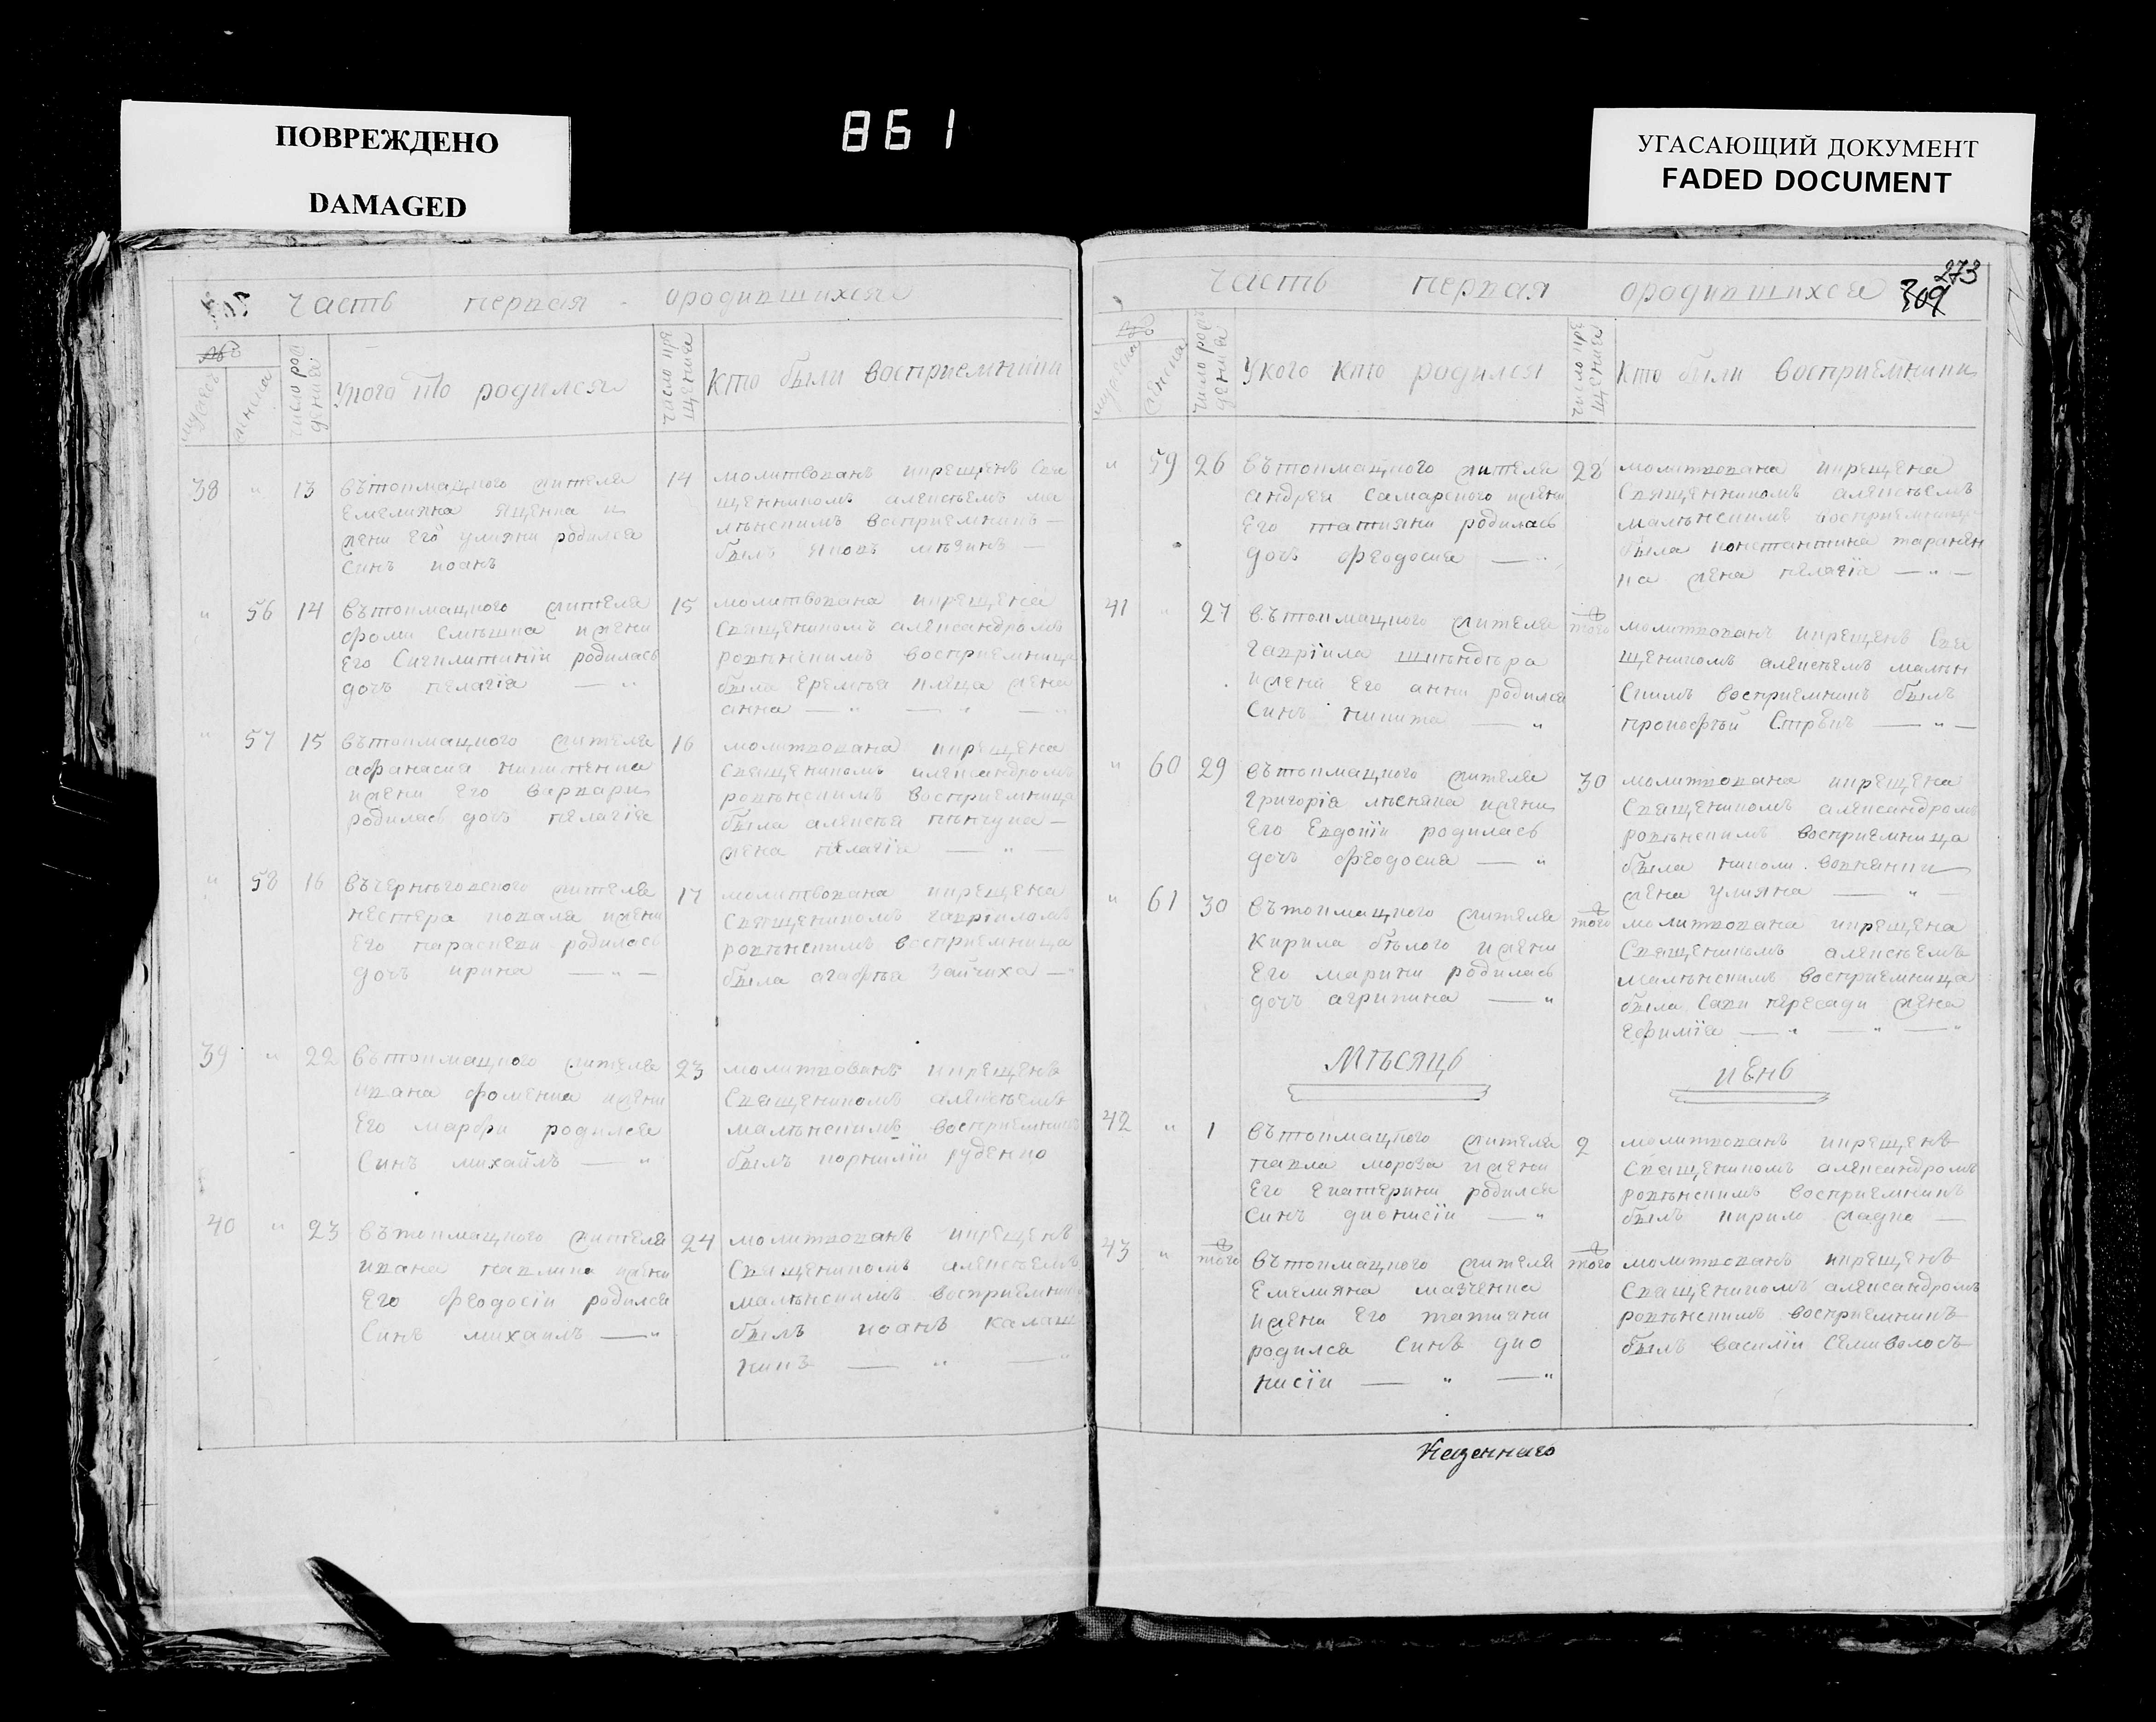 ПОВРЕЖДЕНО
DAMAGED
861
УГАСАЮЩИЙ ДОКУМЕНТ
FADED DOCUMENT
Часть первая ородившихся
№
мужеск
женска
число рождения
У кого кто родился
число крещения
Кто были восприемники
38 " 13 въ токмацкого жителя
Емелияна ященка и
жени Его улияни родился
Синъ иоанъ
14 молитвованъ икрещенъ Свя
щенникомъ алексѣемъ ма
лѣнскимъ восприемникъ —
былъ яковъ —
" 56 14 въ токмацкого жителя
фоми Смѣшка ижени
Его Сигклитикіи родилась
дочъ пелагія — "
15 молитвована икрещена
Священикомъ александромъ
ровѣнскимъ восприемница
была Еремѣя жена
анна — " — " — "
" 57 15 въ токмацкого жителя
афанасия никитенка
ижени Его варвари
родилась дочъ пелагія
16 молитвована икрещена
Священикомъ александромъ
ровѣнскимъ восприемница
была алексѣя —
жена пелагія — " —
" 58 16 въ чернѣговского жителя
нестера коваля ижени
Его параскеви родилась
дочъ ирина — " —
17 молитвована икрещена
Священикомъ гавріиломъ
ровѣнскимъ восприемница
была агафѣя Зайчиха — "
39 " 22 въ токмацкого жителя
ивана фоменка ижени
Его марфи родился
Синъ михаилъ — "
23 молитвованъ икрещенъ
Священикомъ алексѣемъ
малѣнскимъ восприемникъ
былъ корнилій руденко
40 " 23 въ токмацкого жителя
ивана павлика ижени
Его феодосіи родился
Синъ михаилъ — "
24 молитвованъ икрещенъ
Священикомъ алексѣемъ
малѣнскимъ восприемникъ
былъ иоанъ калаш
никъ — " — "
Часть первая ородившихся
273
309
№
мужеска
женска
число рождения
У кого кто родился
число крещения
Кто были восприемники
" 59 26 въ токмацкого жителя
андрея Самарского ижени
Его татияни родилась
дочъ феодосия — "
28 молитвована икрещена
Священникомъ алексѣемъ
малѣнскимъ восприемница
была константина таранен
ка жена пелагія — " —
41 " 27 въ токмацкого жителя
гавріила шпѣндѣра
ижени Его анни родился
Синъ никита — "
того молитвованъ икрещенъ Свя
щеникомъ алексѣемъ малѣн
Скимъ восприемникъ былъ
прокофѣй — " —
" 60 29 въ токмацкого жителя
григорія лѣсняка ижени
Его Евдокіи родилась
дочъ феодосия — "
30 молитвована икрещена
Священикомъ александромъ
ровѣнскимъ восприемница
была николи
жена улияна — " —
" 61 30 въ токмацкого жителя
Кирила бѣлого ижени
Его марини родилась
дочъ агрипина — "
того молитвована икрещена
Священикомъ алексѣемъ
малѣнскимъ восприемница
была Сави пересади жена
Ефимія — " — " — "
Мѣсяцъ юень
42 " 1 въ токмацкого жителя
павла мороза ижени
Его Екатерини родился
Синъ дионисіи — "
2 молитвованъ икрещенъ
Священикомъ александромъ
ровѣнскимъ восприемникъ
былъ кирило —
43 " того въ токмацкого жителя
Емелияна мазченка
ижени Его татияни
родился Синъ дио
нисіи — " — "
того молитвованъ икрещенъ
Священикомъ александромъ
ровѣнскимъ восприемникъ
былъ василіи Семиволосъ
Казеннаго